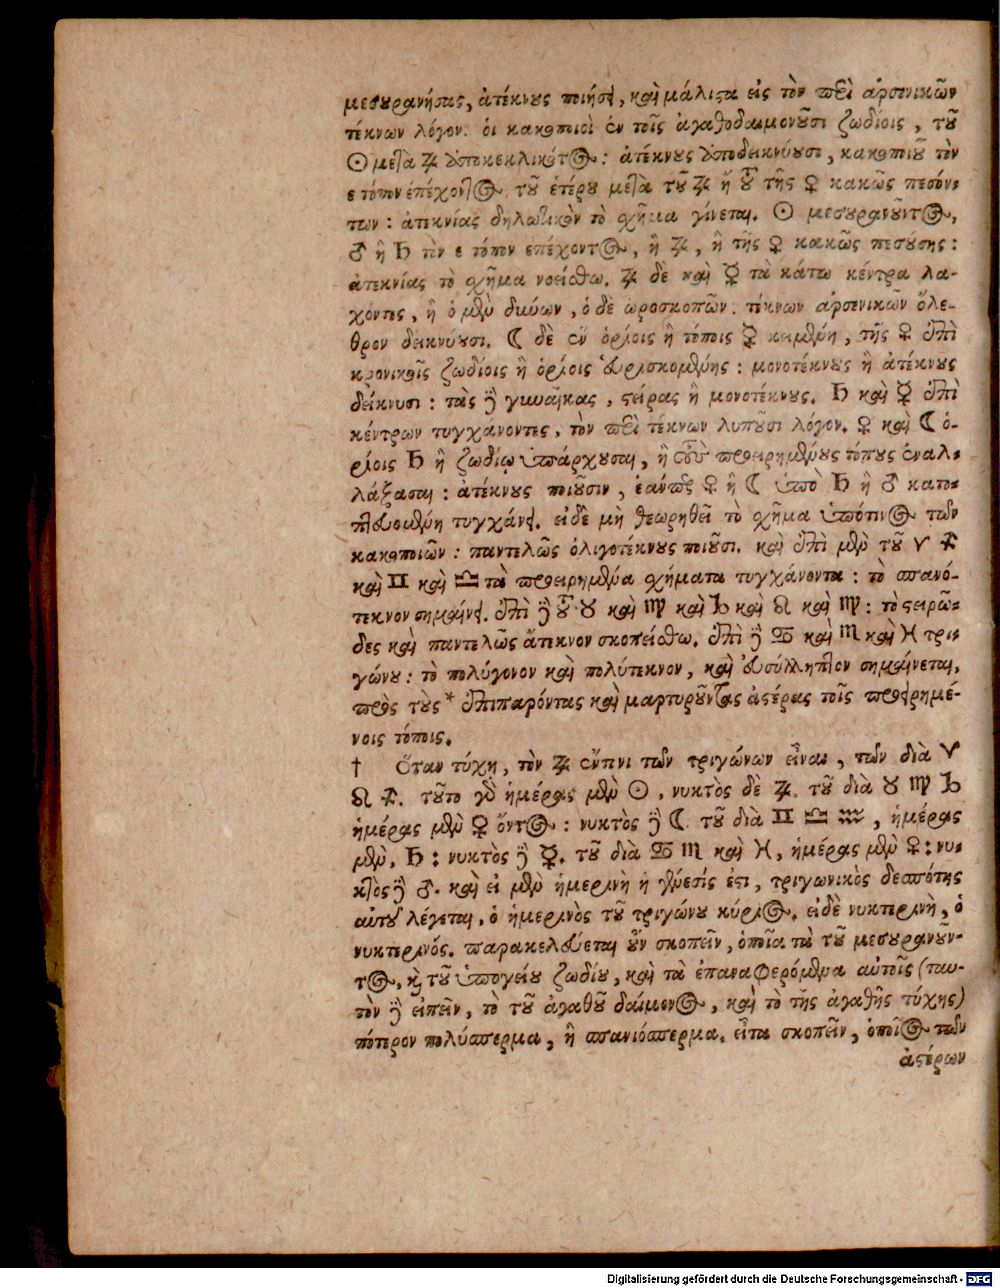 μεσουρανήσας, ἀτέκνους ποιήσει, καὶ μάλιστα εἰς τὸν περὶ ἀρσενικῶν
τέκνων λόγον. οἱ κακοποιοὶ ἐν τοῖς ἀγαθοδαιμονοῦσι ζωδίοις, τοῦ
☉ μετὰ ♃ ἀποκεκλικότος: ἀτέκνους ἀποδεικνύουσι, κακοποιοῦ τὸν
ε τόπον ἐπέχοντος, τοῦ ἑτέρου μετὰ τοῦ ♃ ἢ τῆς ♀ κακῶς πεσόν-
των: ἀτεκνίας δηλωτικὸν τὸ σχῆμα γίνεται. ☉ μεσουρανοῦντος,
♂ ἢ ♄ τὸν ε τόπον ἐπέχοντος, ἢ ♃, ἢ τῆς ♀ κακῶς πεσούσης:
ἀτεκνίας τὸ σχῆμα νοείσθω. ♃ δὲ καὶ ☿ τὰ κάτω κέντρα λα-
χόντες, ἢ ὁ μὲν δύνων, ὁ δὲ ὡροσκοπῶν: τέκνων ἀρσενικῶν ὄλε-
θρον δεικνύουσι. ☾ δὲ ἐν ὁρίοις ἢ τόποις ☿ κειμένη, τῆς ♀ ἐπὶ
κρονικοῖς ζωδίοις ἢ ὁρίοις εὑρισκομένης: μονοτέκνους ἢ ἀτέκνους
δείκνυσι: τὰς δὲ γυναῖκας, στείρας ἢ μονοτέκνους. ♄ καὶ ☿ ἐπὶ
κέντρων τυγχάνοντες, τὸν περὶ τέκνων λυποῦσι λόγον. ♀ καὶ ☾ ὁ-
ρίοις ♄ ἢ ζωδίῳ ὑπάρχουσαι, ἢ τοὺς προειρημένους τόπους ἐναλ-
λάξασαι: ἀτέκνους ποιοῦσιν, ἐάνπως ♀ ἢ ☾ ὑπὸ ♄ ἢ ♂ κατο-
πτευομένη τυγχάνει. εἰδὲ μὴ θεωρηθεῖ τὸ σχῆμα ὑπότινος τῶν
κακοποιῶν: παντελῶς ὀλιγοτέκνους ποιοῦσι. καὶ ἐπὶ μὲν τοῦ ♈ ♐
καὶ ♊ καὶ ♎ τὰ προειρημένα σχήματα τυγχάνοντα: τὸ σπανό-
τεκνον σημαίνει. ἐπὶ δὲ τοῦ ♉ καὶ ♍ καὶ ♑ καὶ ♌ καὶ ♍: τὸ στειρῶ-
δες καὶ παντελῶς ἄτεκνον σκοπείσθω. ἐπὶ δὲ ♋ καὶ ♏ καὶ ♓ τρι-
γώνου: τὸ πολύγονον καὶ πολύτεκνον, καὶ εὐσύλληπτον σημαίνεται,
πρὸς τοὺς * ἐπιπαρόντας καὶ μαρτυροῦντας ἀστέρας τοῖς προειρημέ-
νοις τόποις.
† Ὅταν τύχῃ, τὸν ♃ ἔν τινι τῶν τριγώνων εἶναι, τῶν διὰ ♈
♌ ♐. τοῦτο γὰρ ἡμέρας μὲν ☉, νυκτὸς δὲ ♃. τοῦ διὰ ♉ ♍ ♑
ἡμέρας μὲν ♀ ὄντος: νυκτὸς δὲ ☾. τοῦ διὰ ♊ ♎ ♒, ἡμέρας
μὲν, ♄: νυκτὸς δὲ ☿. τοῦ διὰ ♋ ♏ καὶ ♓, ἡμέρας μὲν ♀: νυ-
κτὸς δὲ ♂. καὶ εἰ μὲν ἡμερινὴ ἡ γένεσίς ἐστι, τριγωνικὸς δεσπότης
αὐτοῦ λέγεται, ὁ ἡμερινὸς τοῦ τριγώνου κύριος. εἰδὲ νυκτερινὴ, ὁ
νυκτερινός. παρακελεύεται οὖν σκοπεῖν, ὁποῖα τὰ τοῦ μεσουρανοῦν-
τος, καὶ τοῦ ὑπογείου ζωδίου, καὶ τὰ ἐπαναφερόμενα αὐτοῖς (ταυ-
τὸν δὲ εἰπεῖν, τὸ τοῦ ἀγαθοῦ δαίμονος, καὶ τὸ τῆς ἀγαθῆς τύχης)
πότερον πολύσπερμα, ἢ σπανιόσπερμα. εἶτα σκοπεῖν, ὁποῖος τῶν
ἀστέρων
Digitalisierung gefördert durch die Deutsche Forschungsgemeinschaft - DFG